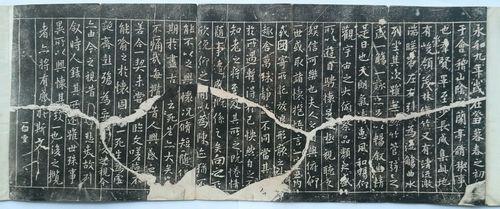 永和九年歲在癸丑暮春之初
于會稽山陰之蘭亭脩禊事
也羣賢畢至少長咸集此地
有峻領茂林脩竹又有清流激
湍暎帶左右引以為流觴曲水
列坐其次雖無絲竹管弦之
盛一觴一詠亦足以暢叙幽情
是日也天朗氣清惠風和暢
觀宇宙之大俯察品類之盛
所以遊目騁懷足以極視聽
娛信可樂也夫人之相與俯仰
世或取諸懷抱言一室之內
或因寄所託放浪形骸之
趣舍萬殊靜不同當其
於所遇得於己快然自足
知老之將至及其所之既惓情
隨事遷感慨係之矣向之所
欣俛仰之間為陳迹
能不以之興懷況脩短隨
期於盡古云死生亦大矣
不痛哉每攬昔人興感之
若合一契未嘗臨文嗟悼不
能喻之於懷固一死生為虛
誕齊彭殤為妄後之視今
由今之視昔悲夫故列
叙時人錄其所雖世殊事
異所以興懷其致一也後之攬
者亦將有感於斯文